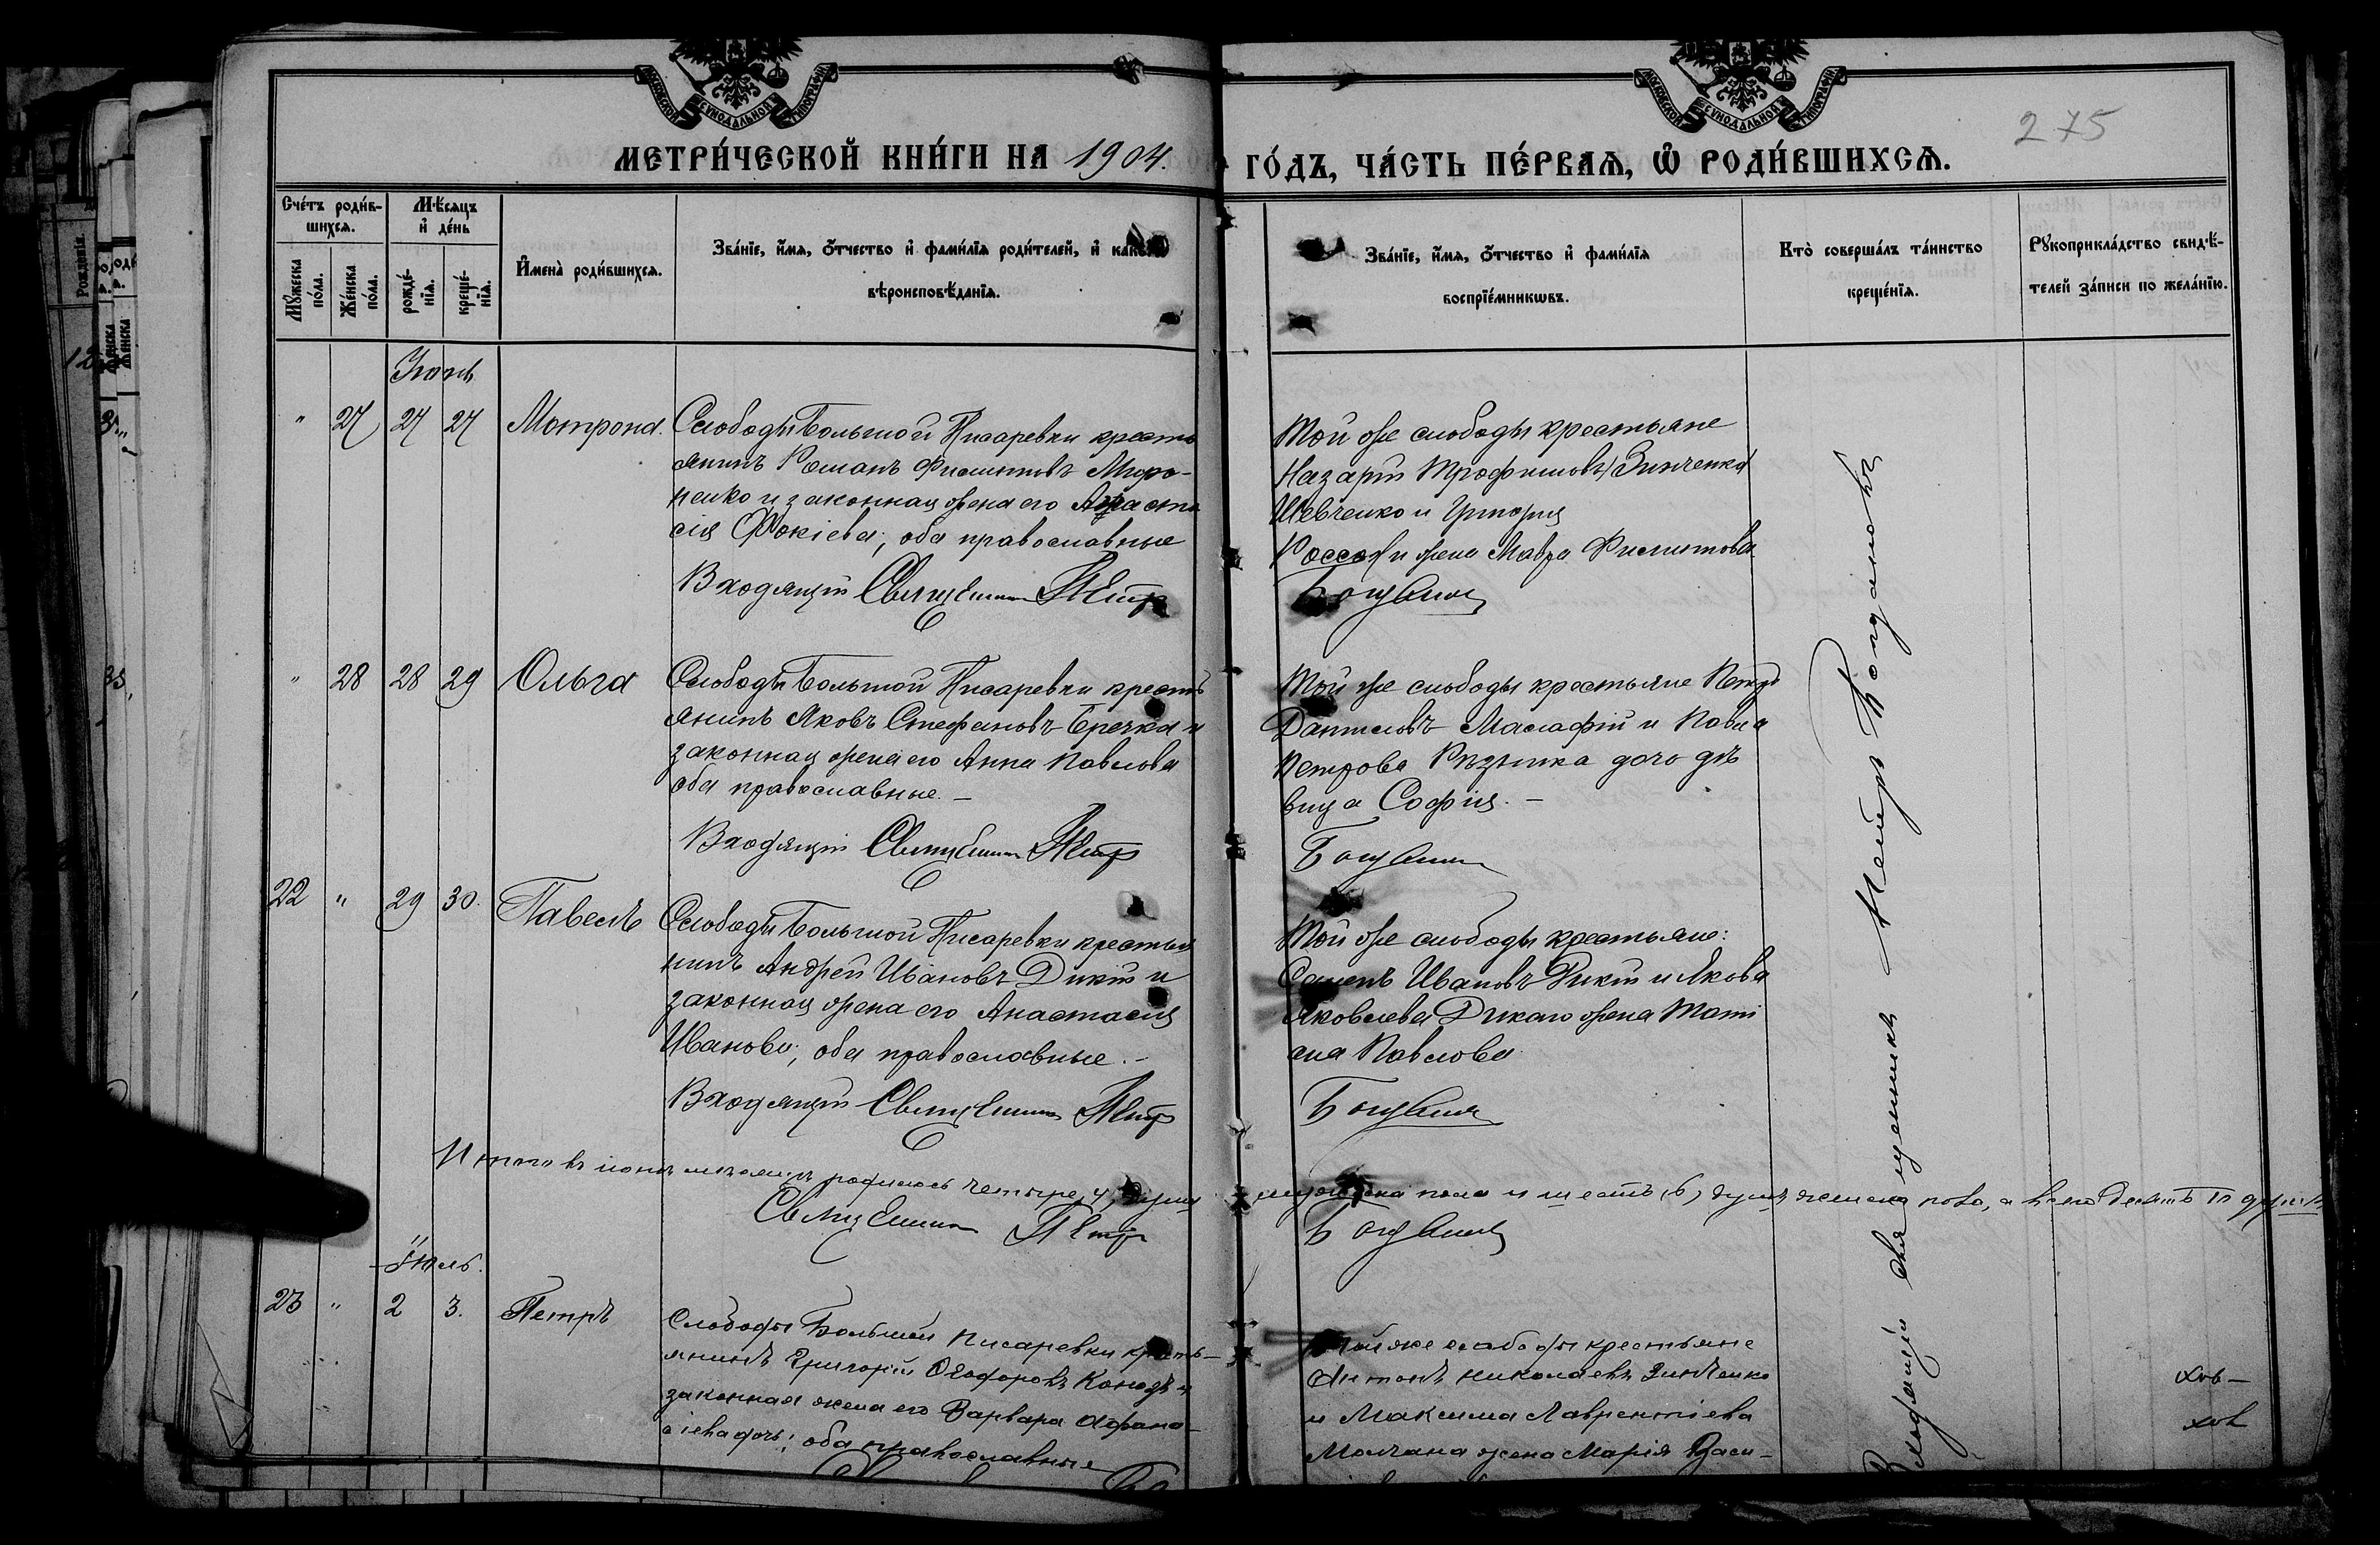 МОСКОВСКОЙ СУНОДАЛЬНОЙ ТИПОГРАФІИ
МОСКОВСКОЙ СУНОДАЛЬНОЙ ТИПОГРАФІИ
275
МЕТРИ́ЧЕСКОЙ КНИ́ГИ НА 1904. ГО́ДЪ, ЧА́СТЬ ПЕ́РВАѦ, Ѡ РОДИ́ВШИХСѦ.
Сче́тъ роди́в-
шихся.
Мѣ́сяцъ
и де́нь
Мꙋ́жеска
по́ла.
Же́нска
по́ла.
рожде́-
нїя.
креще́-
нїя.
Имена̀ роди́вшихся.
Зва́нїе, и́мя, ѻ́тчество и фами́лїя роди́телей, и
вѣроисповѣ́данїя.
Зва́нїе, и́мя, ѻ́тчество и фами́лїя
воспрїе́мникѡвъ.
Кто̀ соверша́лъ та́инство
креще́нїя.
Рꙋкоприкла́дство свидѣ́-
телей за́писи по жела́нїю.
Іюнь
" 27 27 27 Матрона.
Слободы Большой Писаревки кресть
янинъ Романъ Филиповъ Миро-
ненко и законная жена его Анаста
сія Фокіева, оба православные
Входящій Священникъ Петръ
Той же слободы крестьяне
Назарій Трофимовъ Зинченко
Шевченко и Григорія
жена Мавра Филипова
Богданов
" 28 28 29 Ольга
Слободы Большой Писаревки кресть
янинъ Яковъ Стефановъ Гречка и
законная жена его Анна Павлова
оба православные. –
Входящій Священникъ Петръ
Той же слободы крестьяне Петръ
Даниловъ и Павла
Петрова дочь дѣ
вица Софія. –
Богданов
22 " 29 30. Павелъ
Слободы Большой Писаревки крестья
нинъ Андрей Ивановъ Дикій и
законная жена его Анастасія
Иванова, оба православные. –
Входящій Священникъ Петръ
Той же слободы крестьяне:
Семенъ Ивановъ Дикій и Якова
Яковлева Дикаго жена Тати
ана Павлова
Богданов
Итого въ іюнѣ мѣсяцѣ родилось четыре, 4, души мужеска пола и шесть (6) душъ женска пола, а всего десять 10 душъ
Священникъ Петръ Богданов
Іюль.
23 " 2 3. Петръ
Слободы Большой Писаревки кресть-
янинъ Григорій Ѳеодоровъ и
законная жена его Варвара Афана-
сіева дочь; оба православные
Той же слободы крестьяне
Антонъ Николаевъ Зинченко
и Максима Лаврентіева
Молчана жена Марія Васи-
Входящій священникъ Петръ Богдановъ